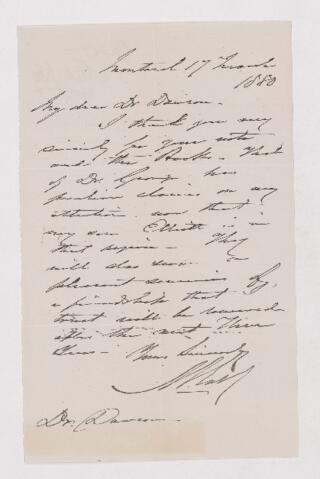 Montreal 17 March
1880
My dear Dr Dawson.
I thank you very
sincerely for your note
and the Books. That
of Dr. George has
claims on my
attention now that
my son Elliott is in
that region - They
will also
pleasant souvenirs of
a friendship that I
trust will be renewed
after the next three
years - Yours Sincerely
Dr. Dawson